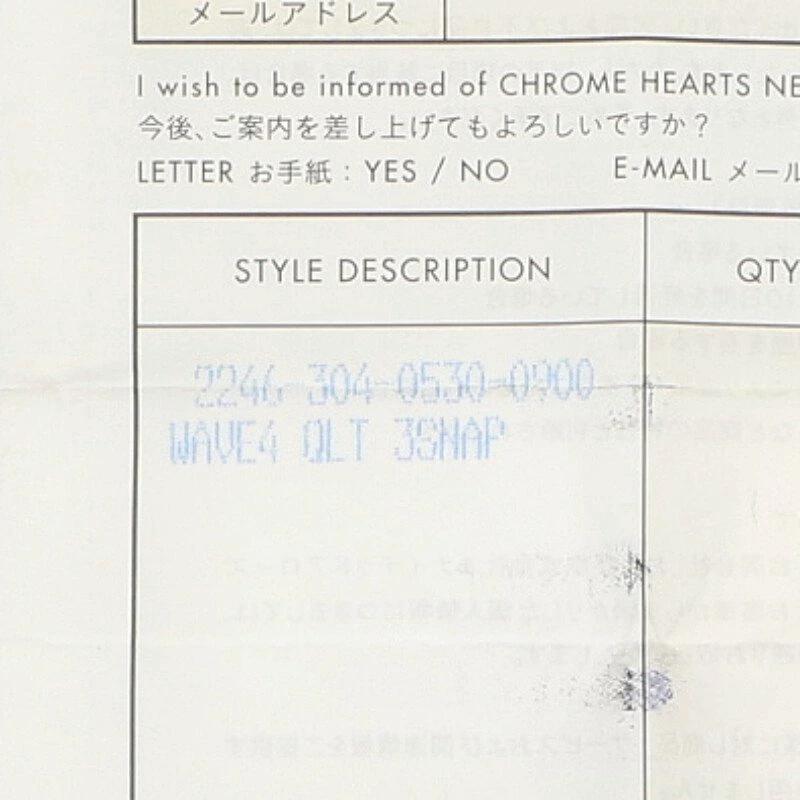 メールアドレス
I wish to be informed of CHROME HEARTS NE
今後、ご案内を差し上げてもよろしいですか？
LETTER お手紙 : YES / NO E-MAIL メール
STYLE DESCRIPTION QTY
2246-304-0530-0900
WAVE4 QLT 3SNAP